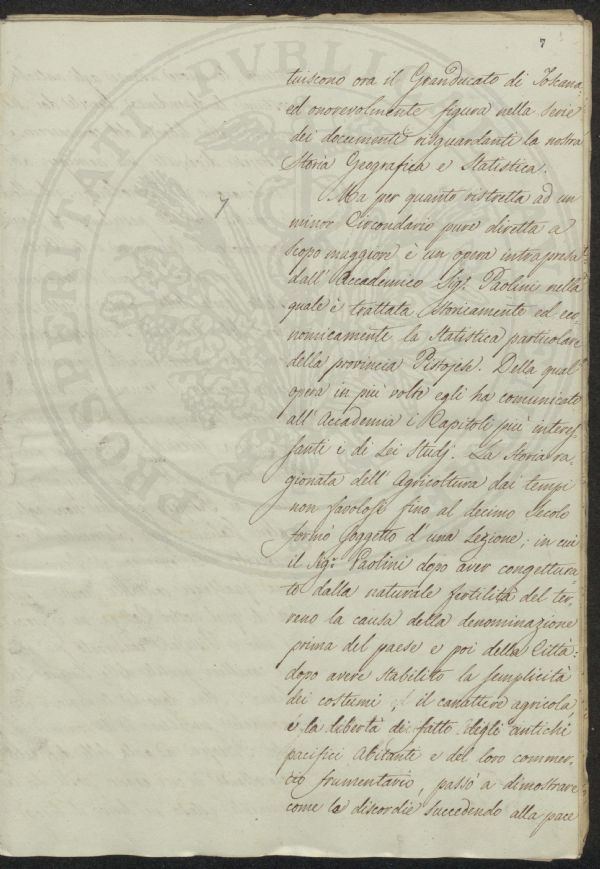 7
tuiscono ora il Granducato di Toscana,
ed onorevolmente figura nella Serie
dei documenti risguardanti la nostra
Storia Geografica e Statistica.
Ma per quanto ristretta ad un
minor Circondario pure diretta a
scopo maggiore è un opera intrapresa
dall'Accademico Sigr. Paolini nella
quale è trattata Storicamente ed eco-
nomicamente la Statistica particolare
della provincia Pistojese. Della qual'
opera in più volte egli ha comunicato
all'Accademia i Capitoli più interes-
santi i di Lei Studj. La Storia ra-
gionata dell'Agricoltura dai tempi
non favolosi fino al decimo Secolo
formò soggetto d'una Lezione; in cui
il Sigr. Paolini dopo aver congettura-
to dalla naturale fertilità del ter-
reno la causa della denominazione
prima del paese e poi della Città:
dopo avere stabilito la semplicità
dei costumi, il carattere agricola
e la libertà di fatto degli antichi
pacifici Abitanti e del loro commer-
cio frumentario, passò a dimostrare
come le discordie succedendo alla pace
7
PROSPERITATI PVBLICAE